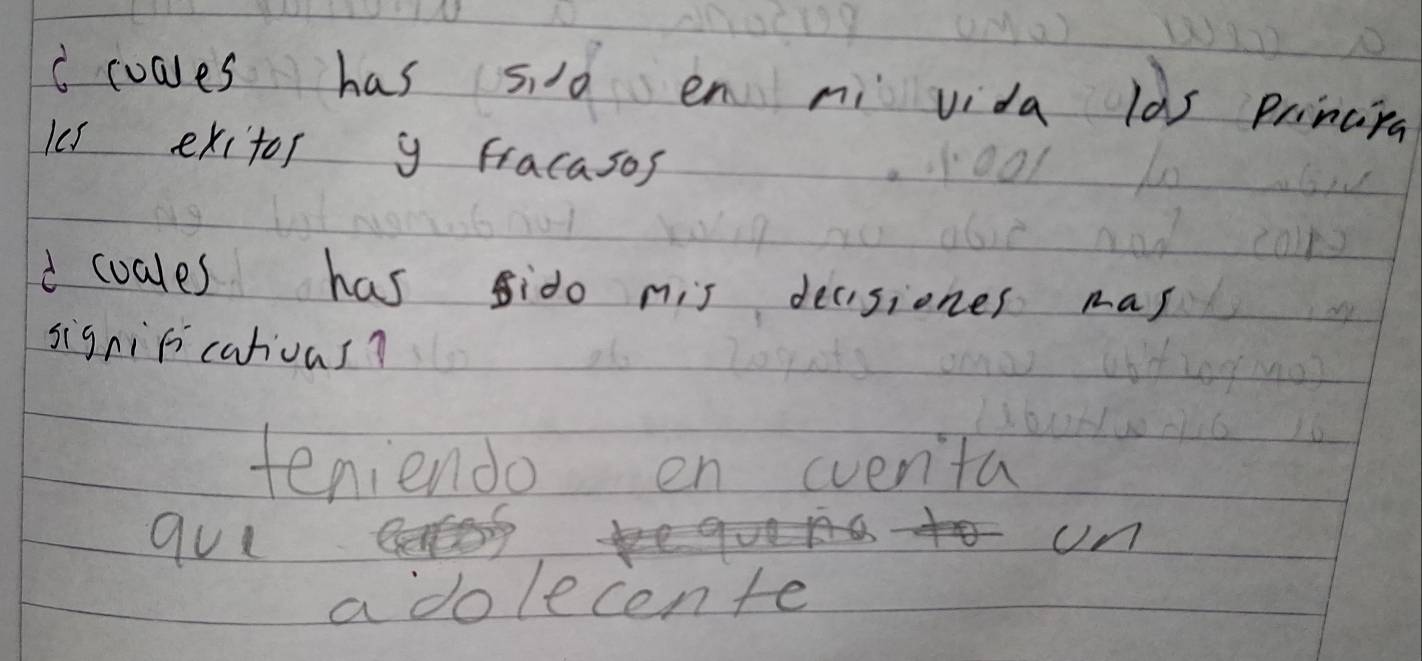 ¿ cuales has sido en mi vida los principa
les exitos y fracasos
¿ cuales has sido mis decisiones mas
significativas?
teniendo en cuenta
que un
adolecente